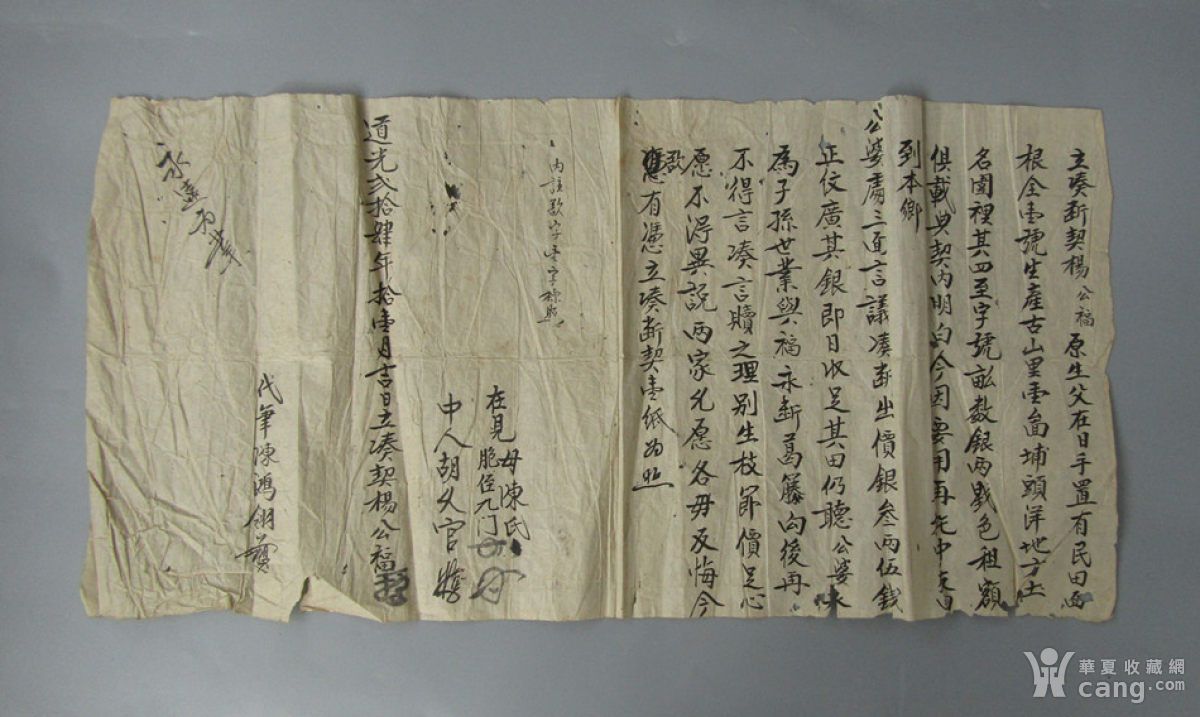 立凑断契楊公福原生父在日手置有民田面
根全壹號生產古山里壹啚埔頭洋地方土
名園裡其四至字號畝数銀兩戥色租額
俱載典契内明白今因要用再托中
到本鄉
公婆處三面言議凑断出價銀叁兩伍錢
正伩廣其銀即日收足其田仍聽公婆永
為子孫世業與福永断葛籐向後再
不得言凑言贖之理别生枝節價足心
愿不得異説两家允愿各毋反悔今
欲
有憑立凑断契壹紙為照
内註欵字壹字標照
在見母陳氏
胞侄九门
中人胡久官
道光弍拾肆年拾壹月吉日立凑契楊公福
代筆陳鴻翎
永遠
華夏收藏網
cang.com